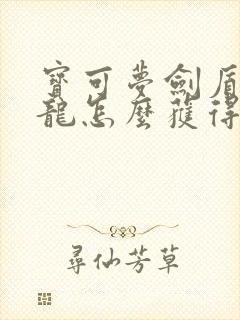 寶可夢劍盾
龍怎麼獲得
尋仙芳草